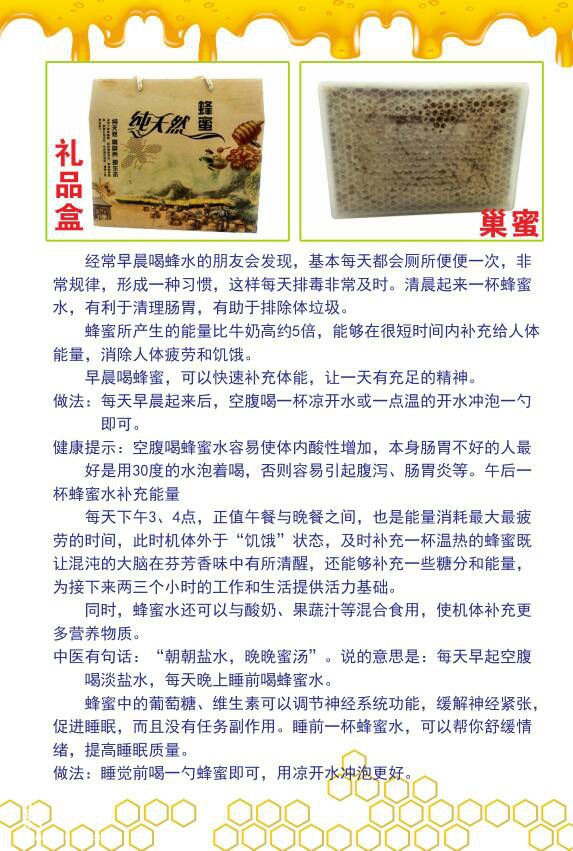 礼品盒
蜂蜜
纯天然
巢蜜
经常早晨喝蜂水的朋友会发现，基本每天都会厕所便便一次，非
常规律，形成一种习惯，这样每天排毒非常及时。清晨起来一杯蜂蜜
水，有利于清理肠胃，有助于排除体垃圾。
蜂蜜所产生的能量比牛奶高约5倍，能够在很短时间内补充给人体
能量，消除人体疲劳和饥饿。
早晨喝蜂蜜，可以快速补充体能，让一天有充足的精神。
做法：每天早晨起来后，空腹喝一杯凉开水或一点温的开水冲泡一勺
即可。
健康提示：空腹喝蜂蜜水容易使体内酸性增加，本身肠胃不好的人最
好是用30度的水泡着喝，否则容易引起腹泻、肠胃炎等。午后一
杯蜂蜜水补充能量
每天下午3、4点，正值午餐与晚餐之间，也是能量消耗最大最疲
劳的时间，此时机体外于“饥饿”状态，及时补充一杯温热的蜂蜜既
让混沌的大脑在芬芳香味中有所清醒，还能够补充一些糖分和能量，
为接下来两三个小时的工作和生活提供活力基础。
同时，蜂蜜水还可以与酸奶、果蔬汁等混合食用，使机体补充更
多营养物质。
中医有句话：“朝朝盐水，晚晚蜜汤”。说的意思是：每天早起空腹
喝淡盐水，每天晚上睡前喝蜂蜜水。
蜂蜜中的葡萄糖、维生素可以调节神经系统功能，缓解神经紧张，
促进睡眠，而且没有任务副作用。睡前一杯蜂蜜水，可以帮你舒缓情
绪，提高睡眠质量。
做法：睡觉前喝一勺蜂蜜即可，用凉开水冲泡更好。